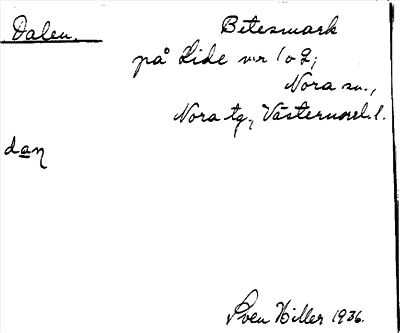 Dalen. Betesmark
på Lide nr 1 o 2;
Nora sn.,
Nora tg, Västernorrl. l.
daη
Sven Hiller 1936.